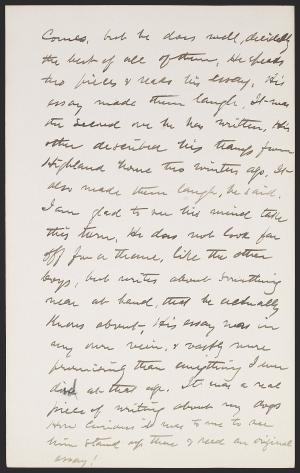 Comes, but he does well, decidedly
the best of all of them, He speaks
two pieces & reads his essay, His
essay made them laugh, It was
the second one he has written, His
other described his tramp from
Highland home two winters ago. It
also made them laugh, he said.
I am glad to see his mind take
this turn, He does not look far
off for a theme, like the other
boys, but writes about something
near at hand, that he actually
knows about, His essay was in
my own vein, & vastly more
promising than anything I ever
did at that age. It was a real
piece of writing about my dogs
How curious it was to me to see
him stand up there & read an original
essay!